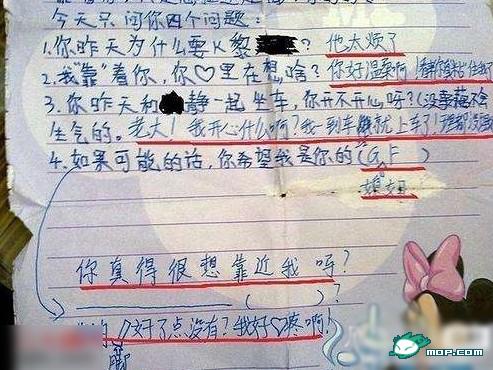 今天只问你四个问题：
1.你昨天为什么要K黎 ？他太烦了
2.我"靠"着你，你♡里在想啥？你好温柔啊！
3.你昨天和 静一起坐车，你开不开心呀？(没事 不会
生气的。老大！我开心什么啊？我一到车 就上车了！
4.如果可能的话，你希望我是你的(G.F )
姐
你真得很想靠近我呀？
( )？
好了点没有？我好♡疼啊！
脚
MOP.com